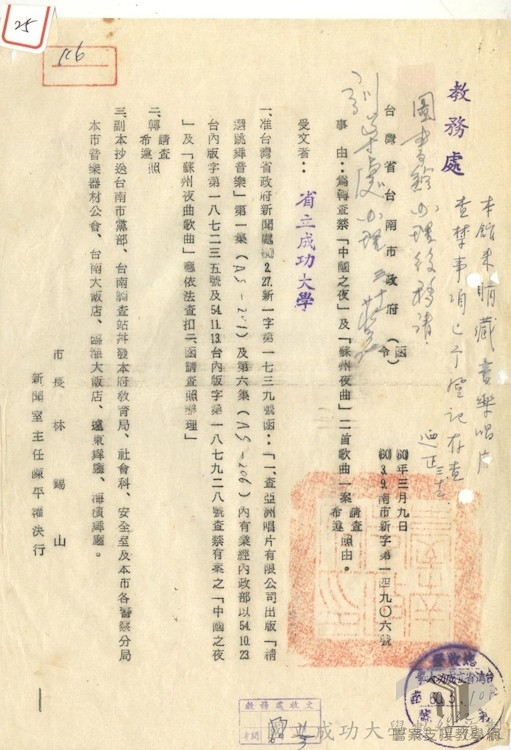 25
506
教務處
圖書館
訓導處
本館未購藏音樂唱片
查禁事項已予登記存查
台灣省台南市政府（函令）
60年三月九日
60 3.9.南市新字第一四九〇六號
事由：為轉查禁「中國之夜」及「蘇州夜曲」二首歌曲一案請查照希遵照由。
受文者：省立成功大學
一、准台灣省政府新聞處60 2.27.新一字第一七三九號函：「一、查亞洲唱片有限公司出版「請
跳舞音樂」第一集（AS-201）及第六集（AS-206）內有業經內政部以54.10.23
台內版字第一八七二三五號及54.11.13台內版字第一八七九二八號查禁有案之「中國之夜
」及「蘇州夜曲歌曲」應依法查扣二函請查照辦理」
二、轉請查照希遵照
三、副本抄送台南市黨部、台南調查站幷發本府教育局、社會科、安全室及本市各警察分局
本市音樂器材公會、台南大飯店、大飯店、遠東舞廳、舞廳。
市長林錫山
新聞室主任陳平 決行
國立成功大學
檔案支援教學網